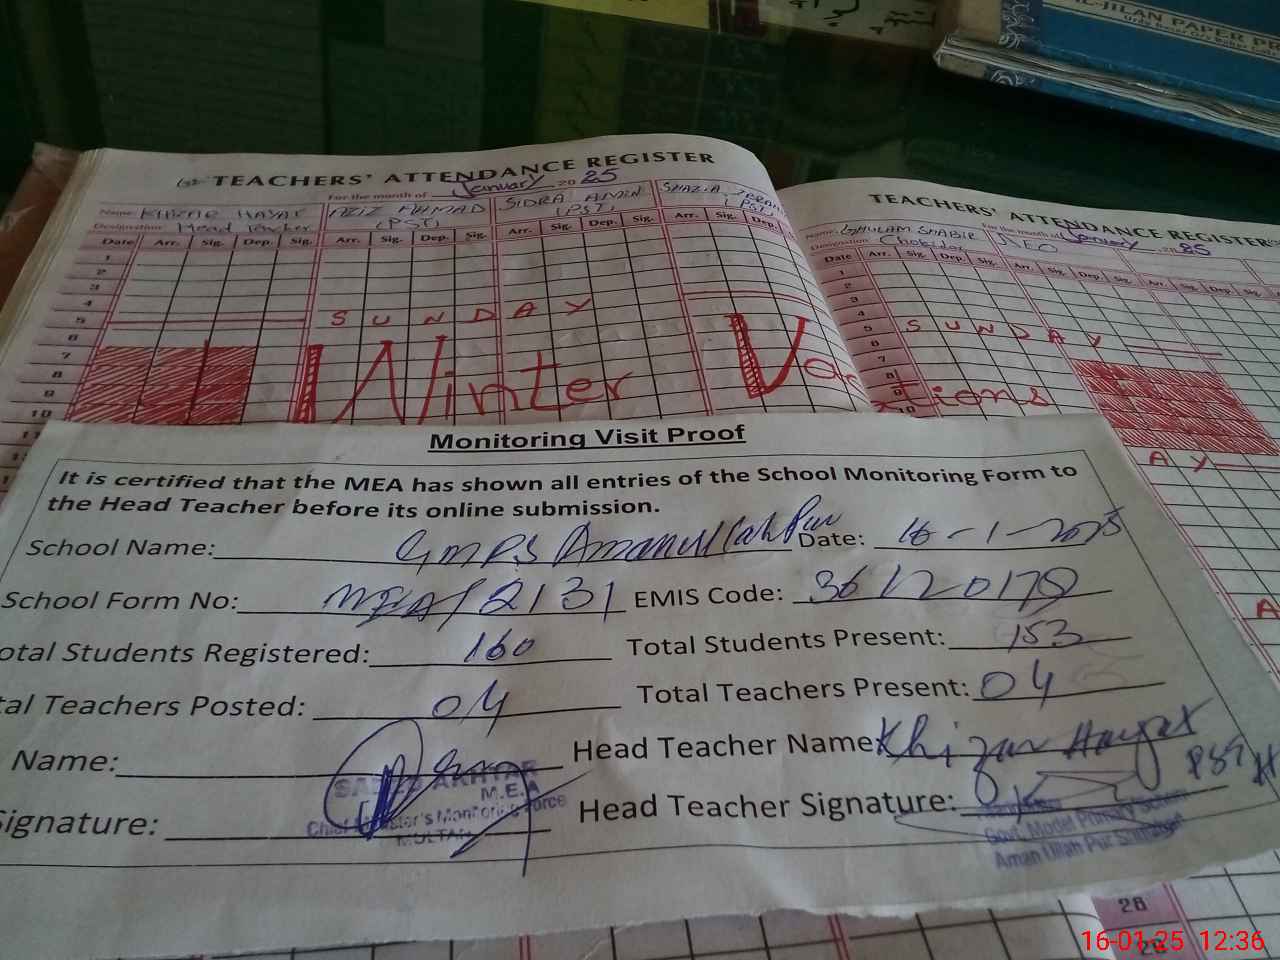 AL-JILAN PAPER PR
TEACHERS' ATTENDANCE REGISTER
For the month of January 2025
Name KHIZAR HAYAT AZIZ AHMAD SIDRA AMIN SHAZIA
Designation Head Teacher (PST) (PST) (PST)
Date Arr. Sig. Dep. Sig. Arr. Sig. Dep. Sig. Arr. Sig. Dep. Sig. Arr. Sig. Dep.
1
2
3
4
5 SUNDAY
6
7
8 Winter Vac
9
10
TEACHERS' ATTENDANCE REGISTER
For the month of January 2085
Name GHULAM SHABIR AEO
Designation Chokidar
Date Arr. Sig. Dep. Sig. Arr. Sig. Dep. Sig. Arr. Sig. Dep. Sig.
1
2
3
4
5 SUNDAY
6
7
8
9 tions
10
A Y
A
Monitoring Visit Proof
It is certified that the MEA has shown all entries of the School Monitoring Form to
the Head Teacher before its online submission.
School Name: GMPS Amanullah Pur Date: 16-1-2025
School Form No: MEA/2131 EMIS Code: 36120178
otal Students Registered: 160 Total Students Present: 153
tal Teachers Posted: 04 Total Teachers Present: 04
Name: Head Teacher Name Khizar Hayat
PST
Signature: Head Teacher Signature:
AKHTAR
M.E.A
Chief Minister's Monitoring Force
MULTAN
Govt. Model Primary School
Aman Ullah Pur
28
16-01-25 12:36